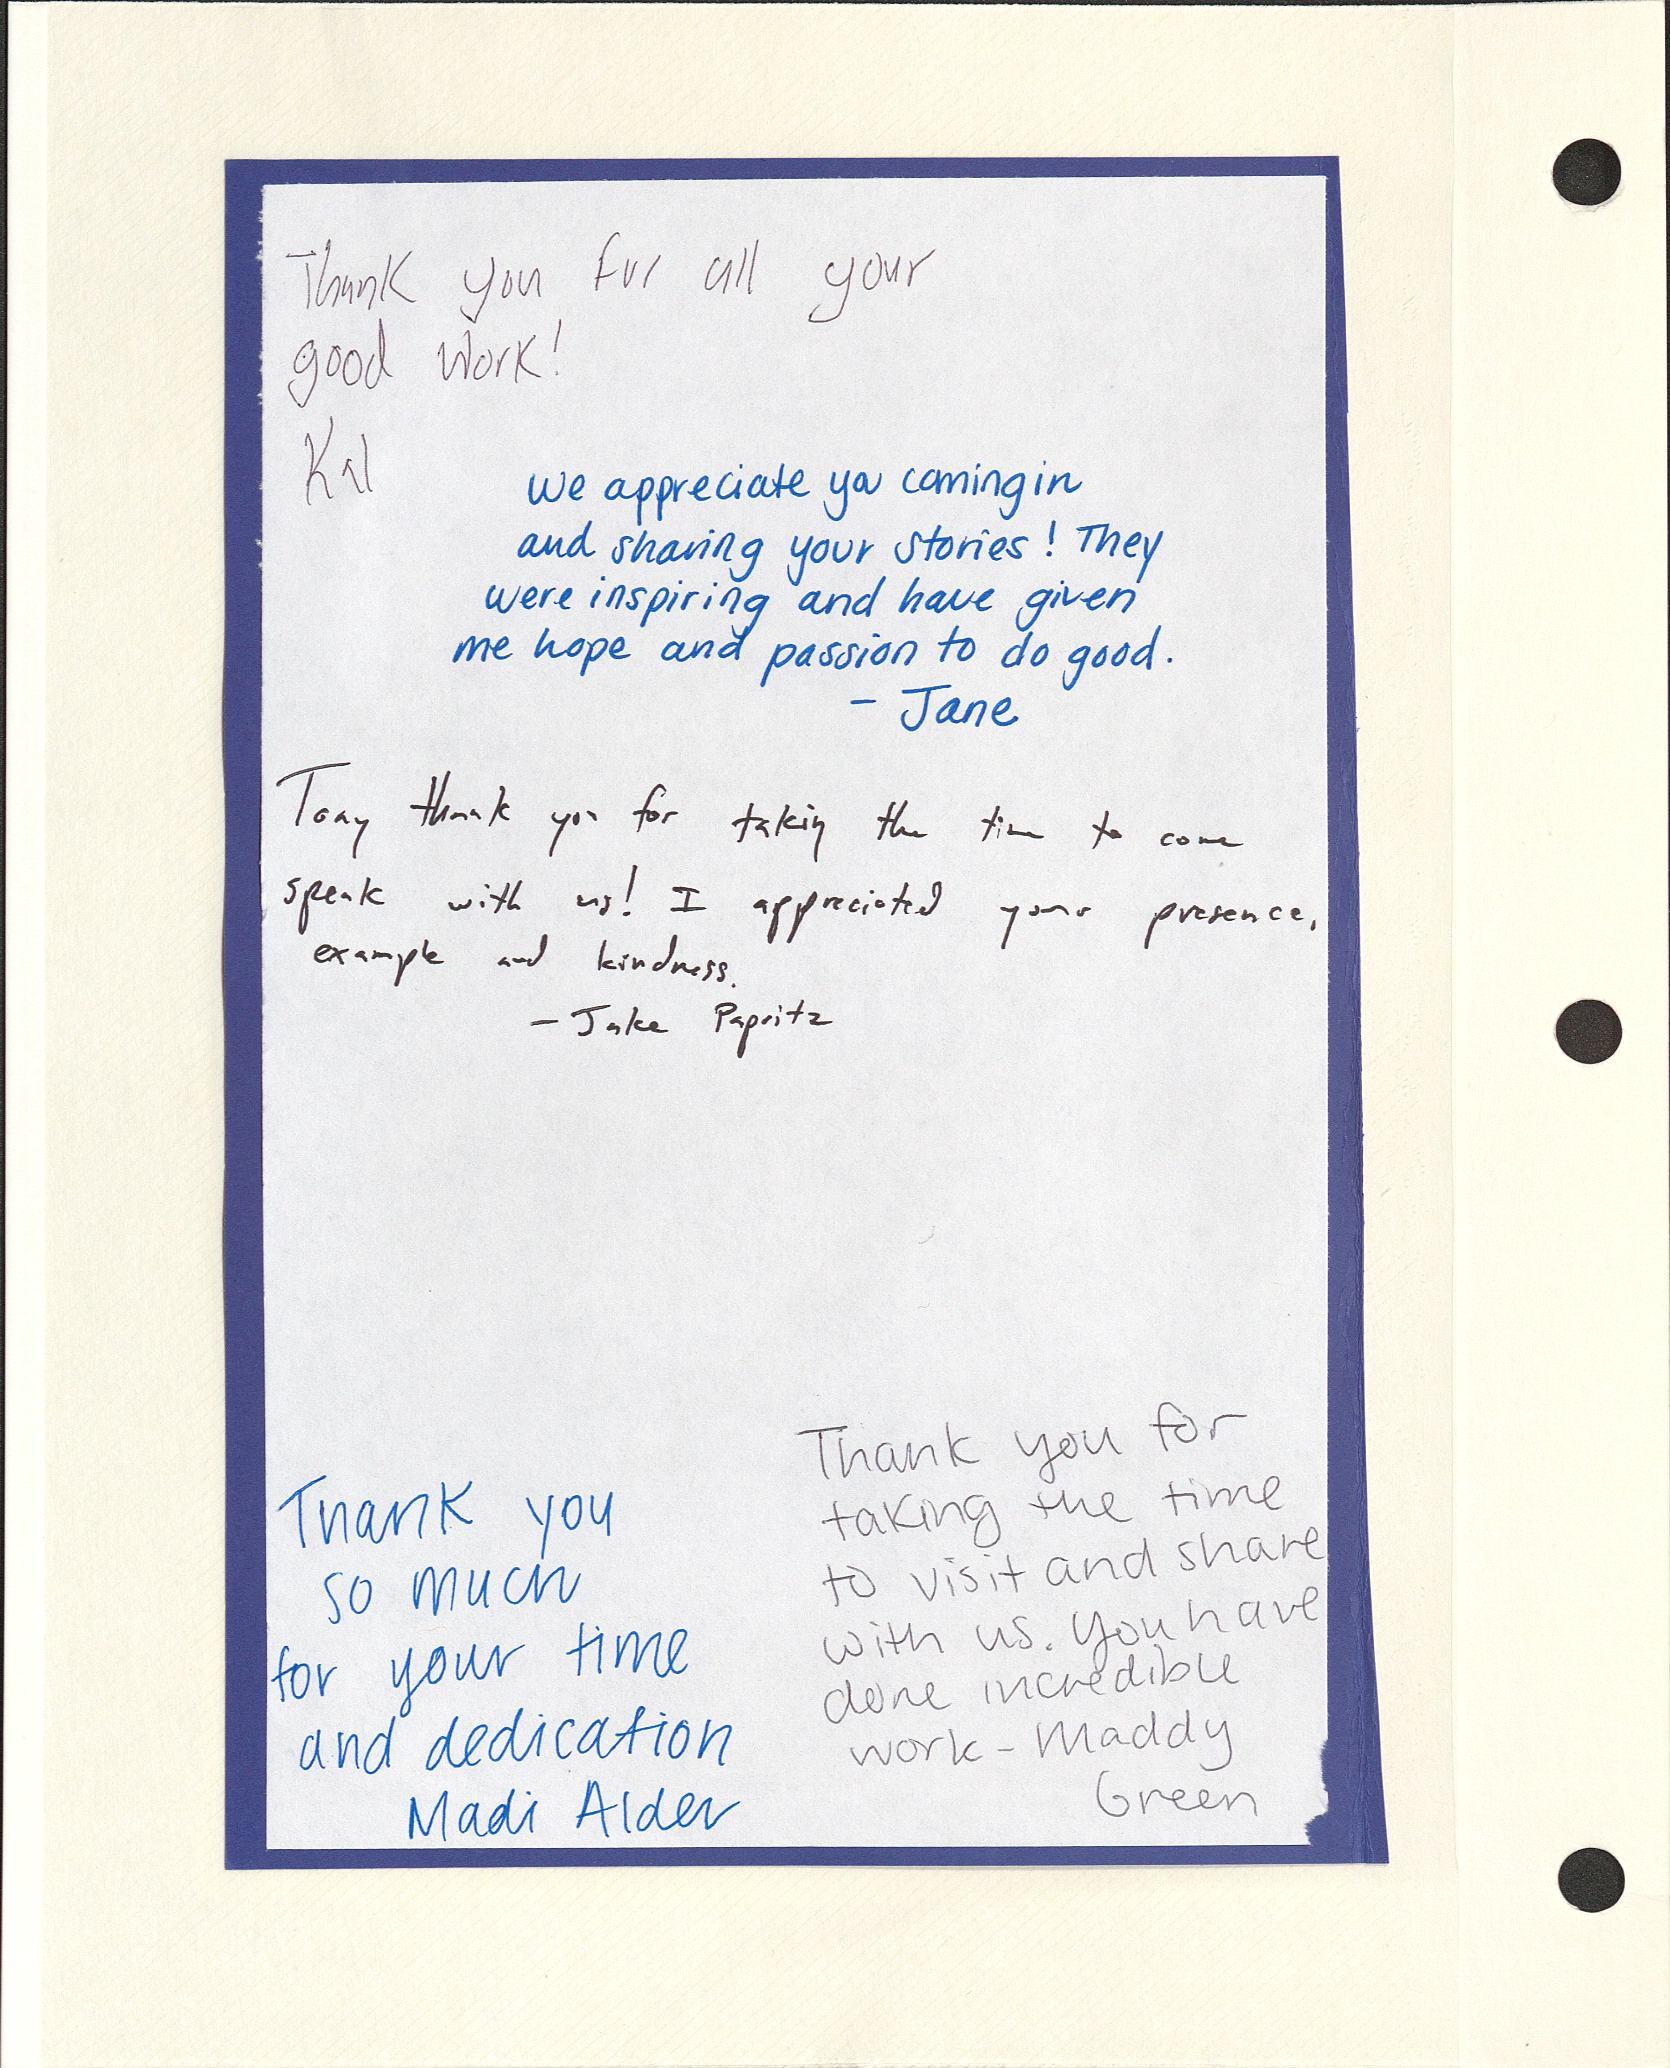 Thank you for all your
good work!
We appreciate you coming in
and sharing your stories! They
were inspiring and have given
me hope and passion to do good.
- Jane
Tony thank you for taking the time to come
speak with us! I appreciated your presence,
example and kindness.
- Jake Papritz
Thank you
so much
for your time
and dedication
Madi Alder
Thank you for
taking the time
to visit and share
with us. You have
done incredible
work - Maddy
Green